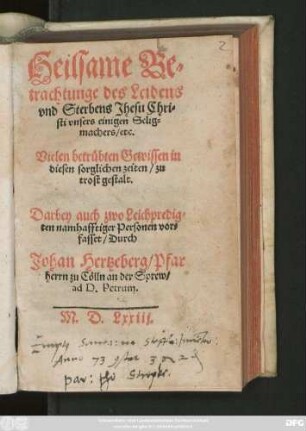 2
Heilsame Be-
trachtunge des Leidens
vnd Sterbens Jhesu Chri-
sti vnsers einigen Selig-
machers/etc.
Vielen betrübten Gewissen in
diesen sorglichen zeiten/zu
trost gestalt.
Darbey auch zwo Leichpredig-
ten namhafftiger Personen vor-
fasset/Durch
Johan Hertzberg/Pfar
herrn zu Cölln an der Sprew/
ad D. Petrum.
M. D. Lxxiii.
Anno 73